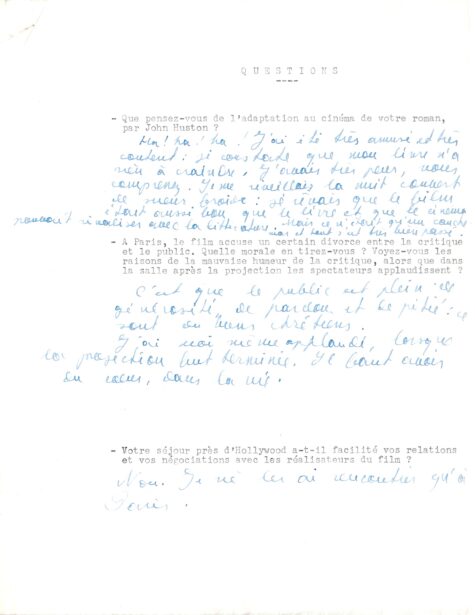 QUESTIONS
- Que pensez-vous de l'adaptation au cinéma de votre roman,
par John Huston ?
Ha! ha! ha! J'ai été très amusé et très
content : je constate que mon livre n'a
rien à craindre. J'avais très peur, vous
comprenez. Je me réveillais la nuit couvert
de sueur froide : je rêvais que le film
était aussi bon que le livre et que le cinéma
pouvait rivaliser avec la littérature. Mais ce n'était qu'un cauche
mar et tout s'est très bien passé.
- A Paris, le film accuse un certain divorce entre la critique
et le public. Quelle morale en tirez-vous ? Voyez-vous les
raisons de la mauvaise humeur de la critique, alors que dans
la salle après la projection les spectateurs applaudissent ?
C'est que le public est plein de
générosité, de pardon et de pitié : ce
sont de bons chrétiens.
J'ai moi même applaudi, lorsque
la projection fut terminée. Il faut avoir
du coeur, dans la vie.
- Votre séjour près d'Hollywood a-t-il facilité vos relations
et vos négociations avec les réalisateurs du film ?
Non. Je ne les ai rencontrés qu'à
Paris.